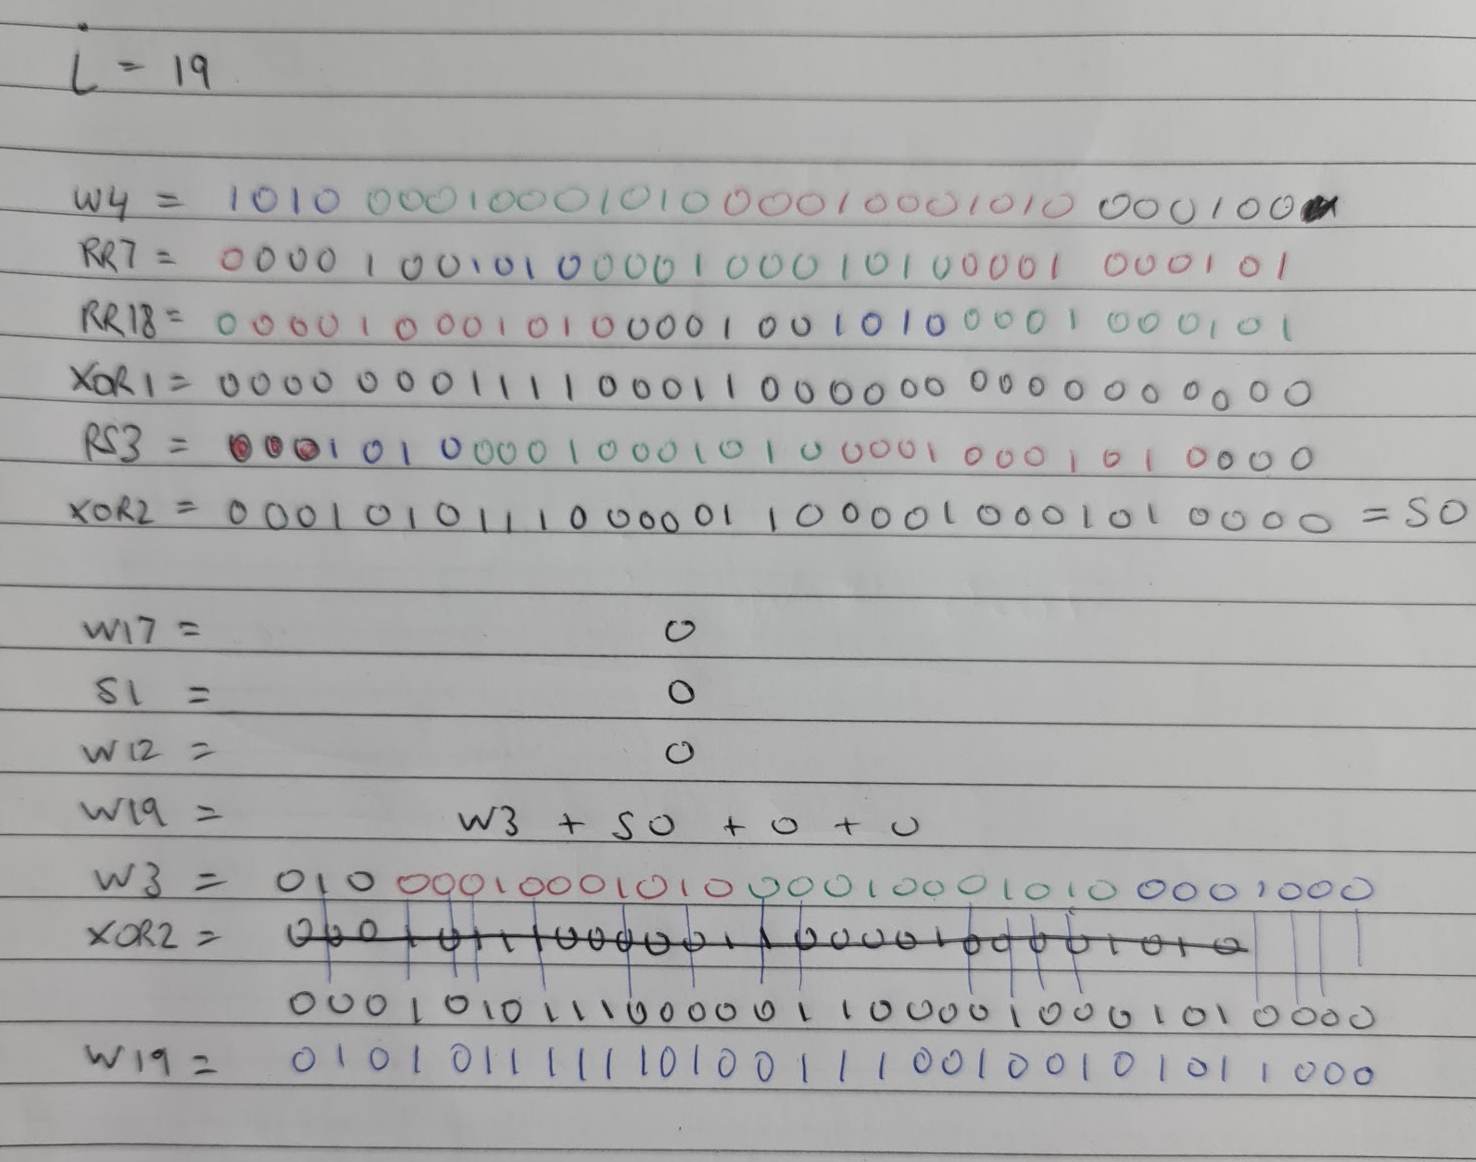 i = 19
W4 = 1010 00010001010 00010001010 000100
RR7 = 00001001010000100010100001 000101
RR18 = 00001000101000010010100001 000101
XOR1 = 00000001111000110000000000000000
RS3 = 00010100001000101000010001010000
XOR2 = 00010101110000011000010001010000 = S0
W17 = 0
S1 = 0
W12 = 0
W19 = W3 + S0 + 0 + 0
W3 = 010 00010001010 00010001010 0001000
XOR2 = 0001011100000110000100001010
00010101110000011000010001010000
W19 = 01010111111010011100100101011000